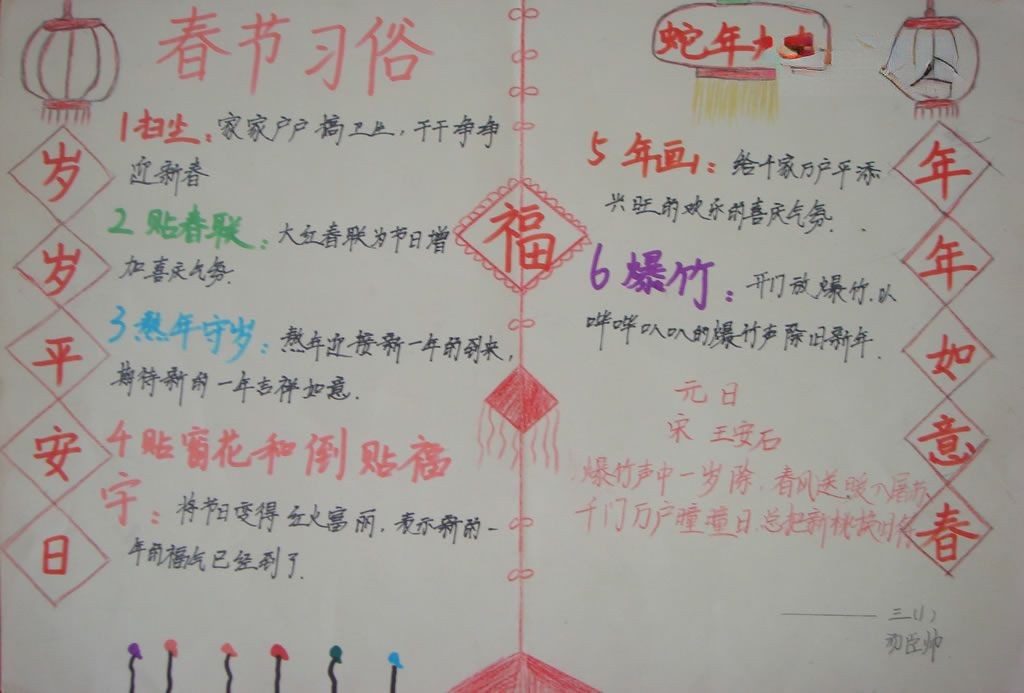 春节习俗
岁岁平安日
1扫尘：家家户户搞卫生，干干净净
迎新春
2贴春联：大红春联为节日增
加喜庆气氛.
3熬年守岁：熬年迎接新一年的到来，
期待新的一年吉祥如意.
4贴窗花和倒贴福
字：将节日变得红火富丽，表示新的一
年的福气已经到了.
福
蛇年大吉
5年画：给千家万户平添
兴旺的欢乐的喜庆气氛.
6爆竹：开门放爆竹.以
哔哔叭叭的爆竹声除旧新年.
元日
宋 王安石
爆竹声中一岁除.春风送暖入屠苏
千门万户曈曈日.总把新桃换旧符
年年如意春
三(1)